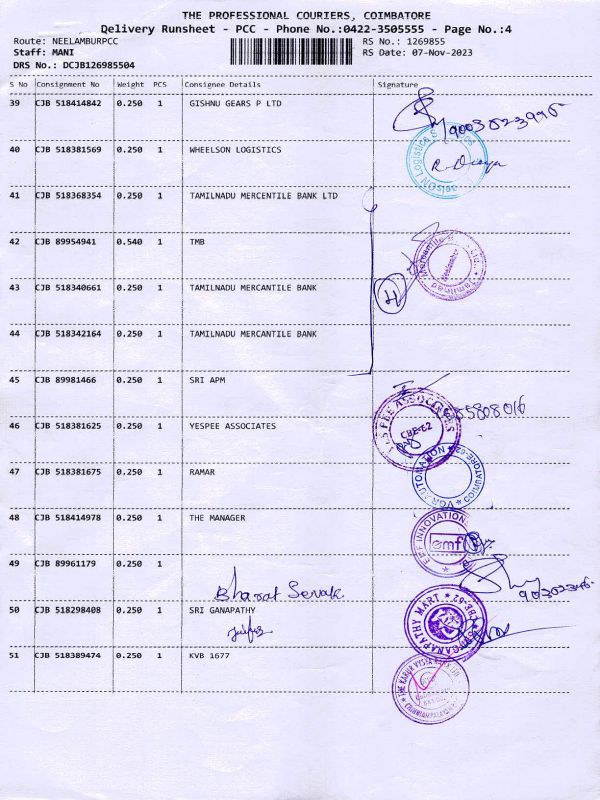 THE PROFESSIONAL COURIERS, COIMBATORE
Delivery Runsheet - PCC - Phone No.:0422-3505555 - Page No.:4
Route: NEELAMBURPCC RS No.: 1269855
Staff: MANI RS Date: 07-Nov-2023
DRS No.: DCJB126985504
S No Consignment No Weight PCS Consignee Details Signature
39 CJB 518414842 0.250 1 GISHNU GEARS P LTD
40 CJB 518381569 0.250 1 WHEELSON LOGISTICS
R. Divya
41 CJB 518368354 0.250 1 TAMILNADU MERCENTILE BANK LTD
42 CJB 89954941 0.540 1 TMB
43 CJB 518340661 0.250 1 TAMILNADU MERCANTILE BANK
4
44 CJB 518342164 0.250 1 TAMILNADU MERCANTILE BANK
45 CJB 89981466 0.250 1 SRI APM
46 CJB 518381625 0.250 1 YESPEE ASSOCIATES
CBE-62
47 CJB 518381675 0.250 1 RAMAR
COIMBATORE-62
48 CJB 518414978 0.250 1 THE MANAGER
EMF INNOVATION
emf
49 CJB 89961179 0.250 1
Bharat Sevak
50 CJB 518298408 0.250 1 SRI GANAPATHY
GANAPATHY MART
51 CJB 518389474 0.250 1 KVB 1677
THE KARUR VYSYA BANK LTD